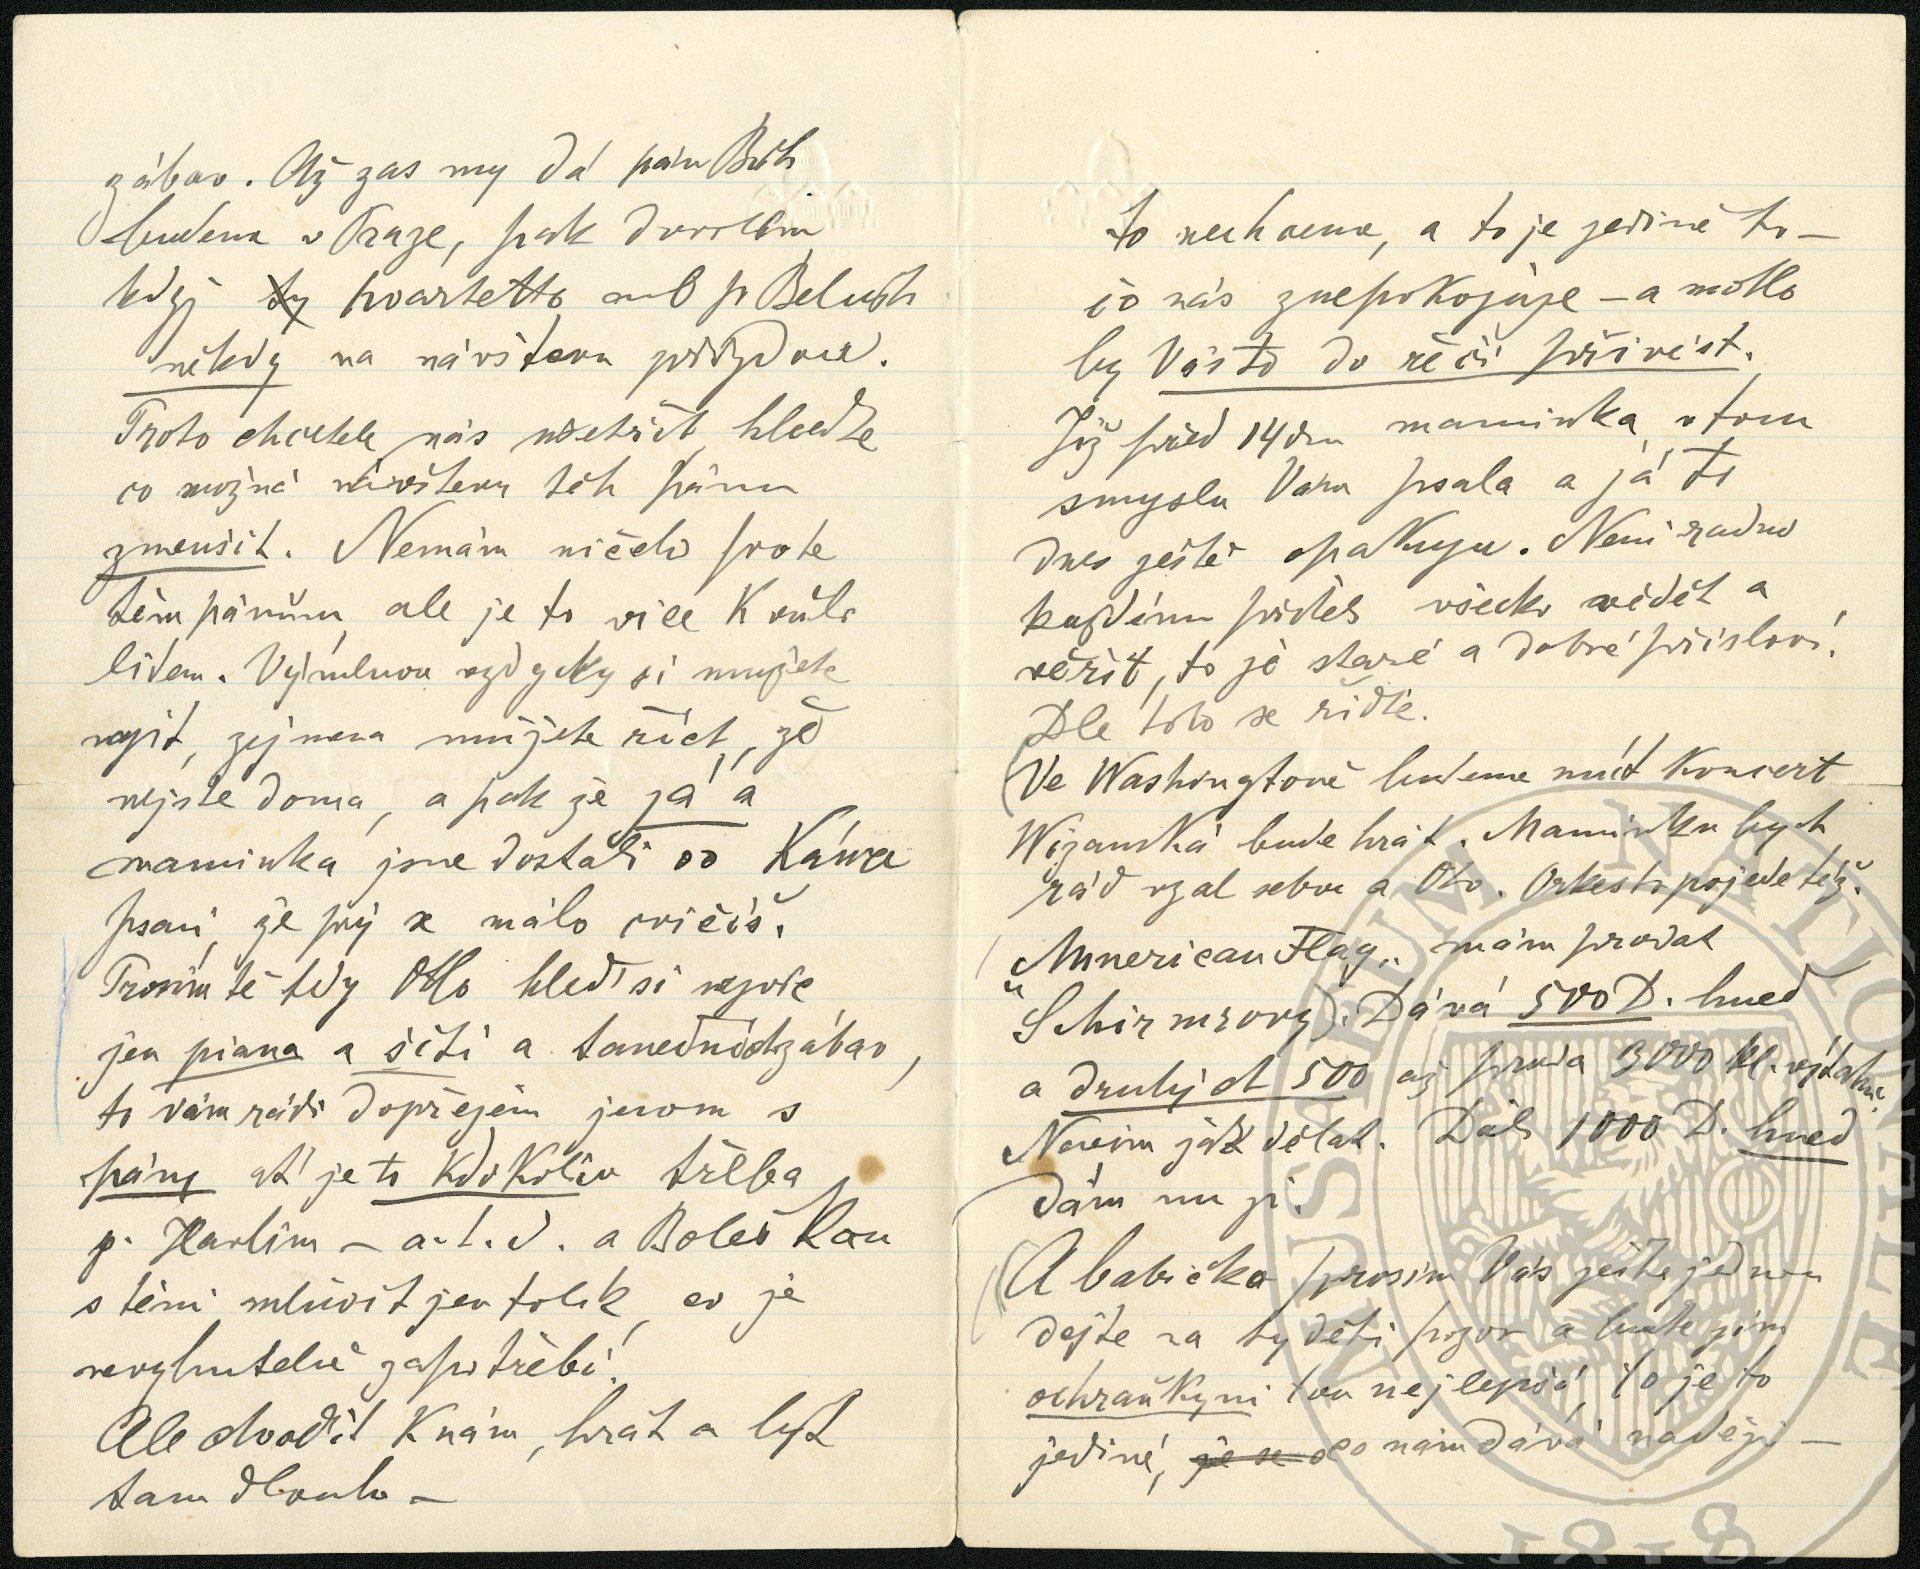 zábav. Až zas my dá pán Bůh
budem v Praze, pak dovolím
když kvartetto neb p Beluśh
někdy na návštevu přijdou.
Proto chcetele nás ušetřit hleďte
co možná návštevu těh pánu
zmenšit. Nemám ničeho prote
těm pánům, ale je to vice K vůli
lidem. Výmluvu vzdycky si mužete
najit, zejmena můžete říct, že
nejste doma, a pak že já a
maminka jsme dostali od Kánze
psaní, že prý se málo cvičíš.
Prosím tě tedy Otlo hleď si nejvíc
jen piana a šití a tanečních zábav,
to vám rádi dopřejem jenom s
pány, ať je to Kdokoliv třeba
p. Havlím – a. t. d. a Boleška
s těmi mluvit jen tolik, co je
nevyhutelně zapotřebí!
Ale chodit K nám, hrát a být
tam dlouho –
to nechceme, a to je jediné to –
co nás znepokojuje – a mohlo
by Vás to do řečí přivést.
Již před 14 dni maminka v tom
smyslu Vám psala a já to
dnes ještě opakuju. Neni radno
každému přítel všecko vědět a
věřit, to je staré a dobré přísloví.
Dle toho se řiďte.
Ve Washingtoně budeme mít Koncert
Wizanská bude hrát. Maminku bych
rád vzal sebou a Oto. Orkestr pojede též.
"Amnerican Flag„ mám prodat
Schirmrovy). Dává 500 D. hned
a druhých 500 až proda 3000 kl. výtahu.
Nevim jak dělat. Dáli 1000 D. hned
dám mu ji.
A babička prosim Vás ještě jednou
dejte na ty děti pozor a buďte jim
ochraňkyni tou nejlepší, to je to
jediné, co nám dává naději –
MUSEUM NATIONALE
1818